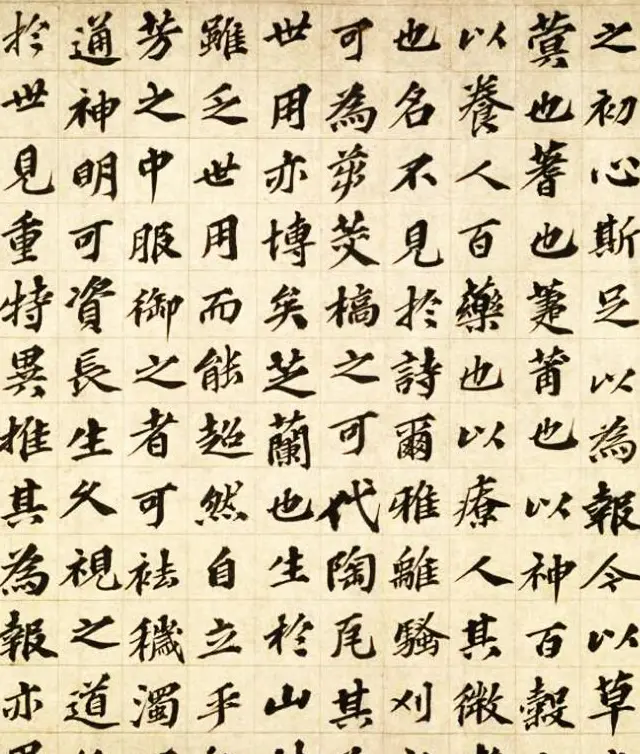 之初心斯足以為報今以草
蓂也蓍也萐莆也以神百穀
以養人百藥也以療人其微
也名不見於詩爾雅離騷刈
可為茭槁之可代陶瓦其
世用亦博矣芝蘭也生於山
雖乏世用而能超然自立乎
芳之中服御之者可祛穢濁
通神明可資長生久視之道
於世見重特異推其為報亦